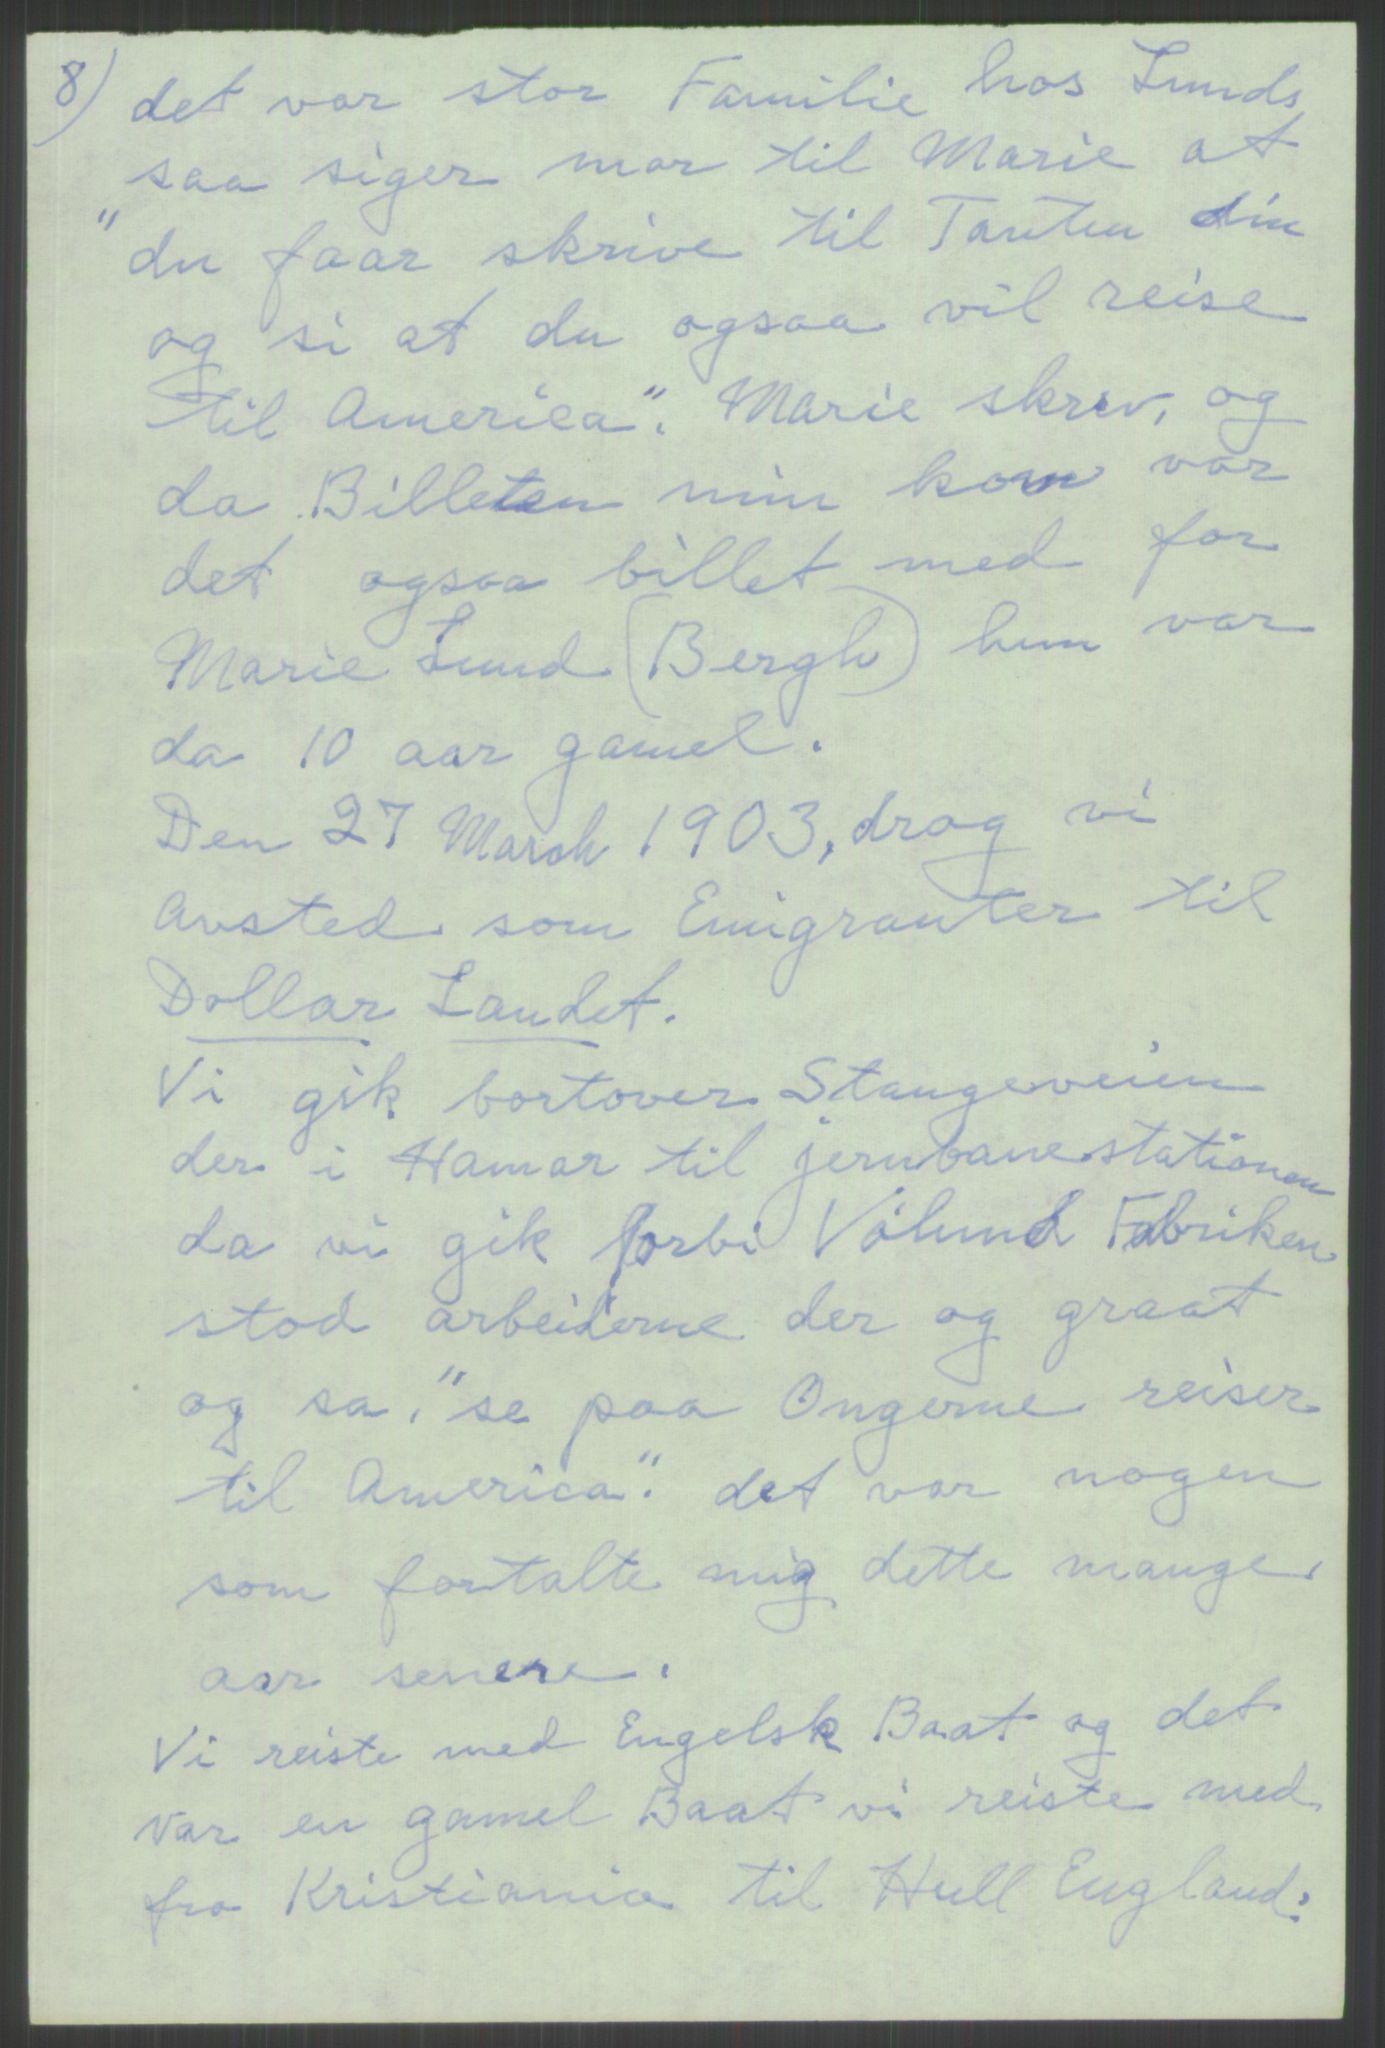 8) det var stor Familie hos Lunds
saa siger mor til Marie at
"du faar skrive til Tanten din
og si at du ogsaa vil reise
til America". Marie skrev, og
da Billeten min kom var
det ogsaa billet med for
Marie Lund (Bergh) hun var
da 10 aar gamel.
Den 27 March 1903, drog vi
avsted som Emigranter til
Dollar Landet.
Vi gik bortover Stangeveien
der i Hamar til jernbanestationen
da vi gik forbi Vølund Fabriken
stod arbeiderne der og graat
og sa, "se paa Ongerne reiser
til America". det var nogen
som fortalte mig dette mange
aar senere.
Vi reiste med Engelsk Baat og det
var en gamel Baat vi reiste med
fra Kristiania til Hull England.